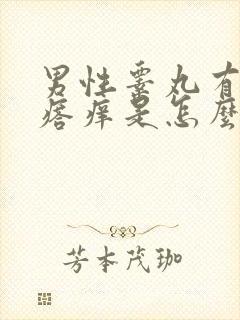 男性睾丸有
痞痒是怎麼
芳本茂珈